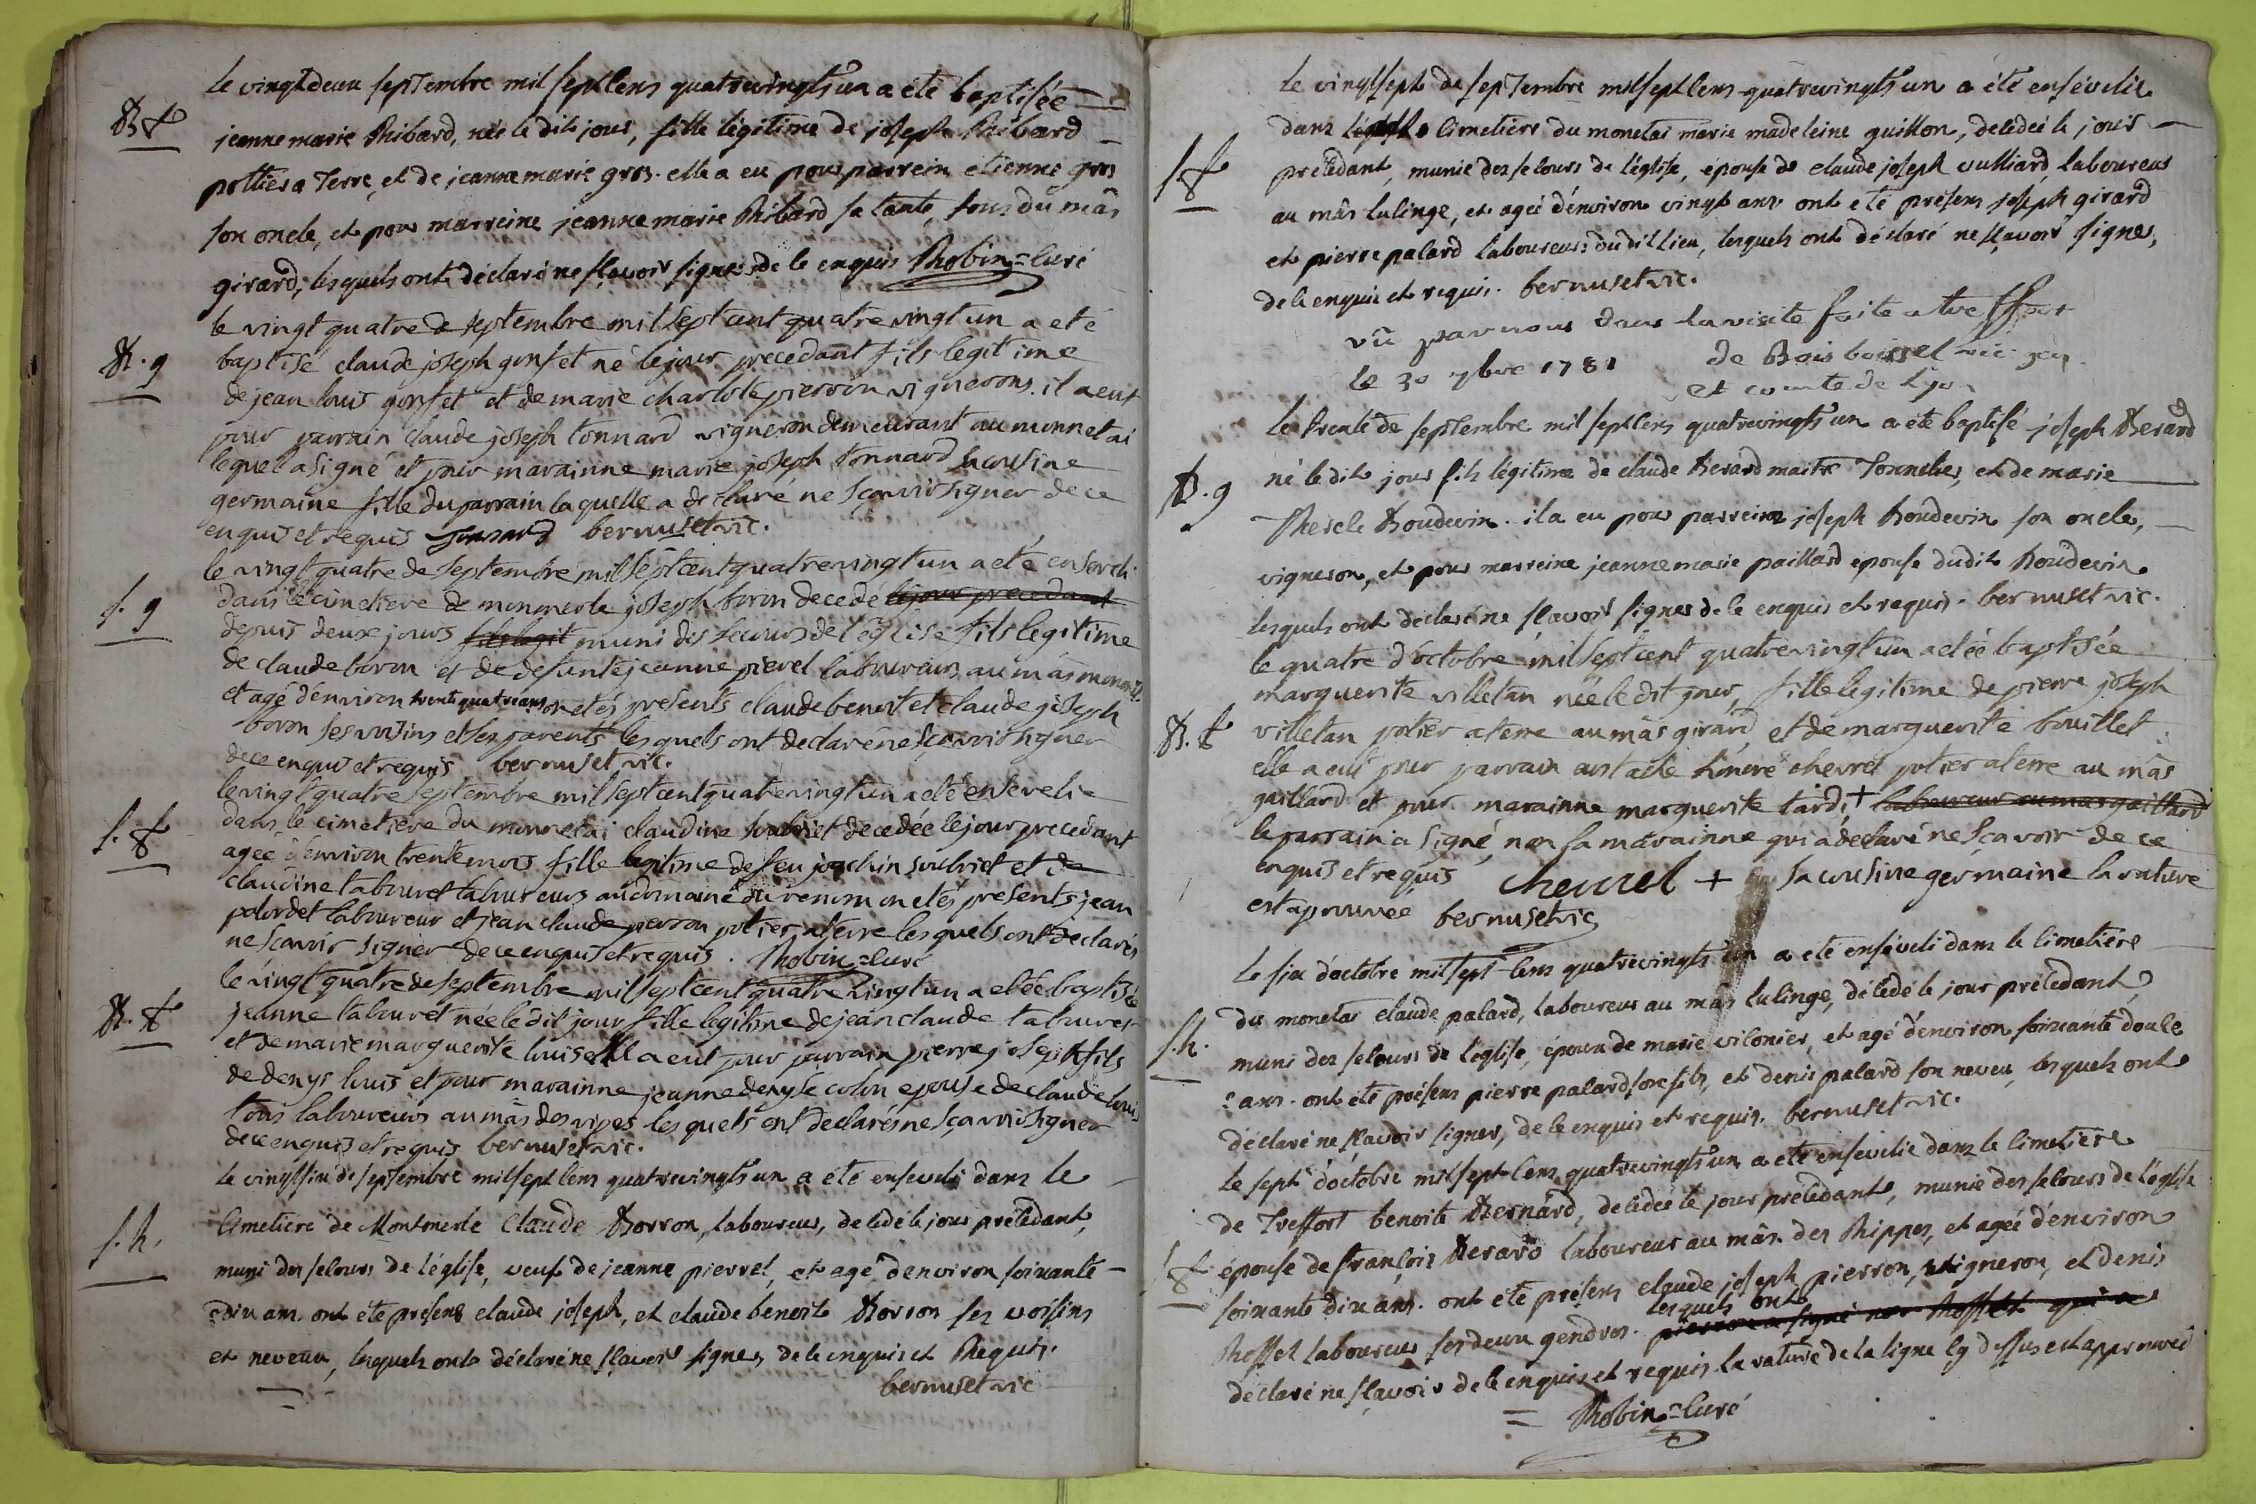 Le vingt deux septembre mil sept cens quatrevingts un a été baptisée
B f
jeanne marie Ribard, née le dit jour, fille légitime de joseph Ribard
pottier a Terre, et de jeanne marie gros. elle a eu pour parrein etienne gros
son oncle, et pour marreine jeanne marie Ribard sa tante, tous du mâs
girard, lesquels ont déclaré ne sçavoir signer de ce enquis Robin=Curé
le vingt quatre de septembre mil sept cent quatre vingt un a eté
B. g
baptisé claude joseph gonfet né le jour precedant fils legitime
de jean louis gonfet et de marie charlote pierron vignerons. il a eut
pour parrain claude joseph tonnard vigneron demeurant au monnetai
lequel a signé et pour marainne marie joseph tonnard sa cousine
germaine fille du parrain laquelle a declaré ne sçavoir signer de ce
enquis et requis tonnard bernuset vic.
le vingt quatre de septembre mil sept cent quatre vingt un a eté enseveli
S. g
dans le cimetiere de monmerle joseph boron decedé le jour precedant
depuis deux jours fils legit muni des secours de l'église fils legitime
de claude boron et de defunte jeanne pierel laboureurs au mâs
et agé d'environ trente quatre ans on etés presents claude benoit et claude joseph
boron ses voisins et ses parents les quels ont declaré ne sçavoir signer
de ce enquis et requis bernuset vic.
le vingt quatre septembre mil sept cent quatre vingt un a eté ensevelie
S. f
dans le cimetiere du monnetai claudine soubriet decedée le jour precedant
agée d'environ trente mois fille legitime de feu joachin soubriet et de
claudine tabouret laboureurs au domaine du renom on etés presents jean
palordet laboureur et jean claude pierron potier a terre les quels ont declarés
ne sçavoir signer de ce enquis et requis. Robin=Curé
le vingt quatre de septembre mil sept cent quatre vingt un a eté baptisée
B. f
jeanne tabouret née le dit jour fille legitime de jean claude tabouret
et de marie marguerite louis elle a eut pour parrain pierre joseph fils
de denys louis et pour marainne jeanne denyse colon epouse de claude louis
tous laboureurs au mâs des ripes les quels ont declarés ne sçavoir signer
de ce enquis et requis bernuset vic.
Le vingt six de septembre mil sept cens quatrevingts un a été enseveli dans le
S. h.
Cimetiere de Montmerle Claude Borron, laboureur, decedé le jour précédant,
muni des secours de l'église, veuf de jeanne pierrel, et agé d'environ soixante
dix ans. ont été présens claude joseph, et claude benoit Borron ses voisins
et neveux, lesquels ont déclaré ne sçavoir signer, de ce enquis et Requis.
bernuset vic
Le vingt sept de septembre mil sept cens quatrevingts un a été ensévelie
dans l'église cimetiere du monetai marie madeleine guillon, décédée le jour
S f
précédant, munie des secours de l'église, épouse de claude joseph vulliard, laboureur
au mâs lulinge, et agée d'environ vingt ans. ont été présens joseph girard
et pierre palard laboureurs dudit lieu, lesquels ont déclaré ne sçavoir signer,
de ce enquis et requis. bernuset vic.
vû par nous dans la visite faite a treffort
le 30 7bre 1781 de Bois boissel vic. gen
et comte de Lyon
Le trente de septembre mil sept cens quatrevingts un a été baptisé joseph Berard
B. g
né le dit jour fils légitime de claude Berard maitre Tonnelier, et de marie
Therese Boudevin. il a eu pour parreine joseph boudevin son oncle,
vigneron, et pour marreine jeanne marie paillard epouse dudit boudevin
lesquels ont déclaré ne sçavoir signer de ce enquis et requis. bernuset vic.
le quatre d'octobre mil sept cent quatre vingt un a etée baptisée
marguerite villetan née le dit jour, fille legitime de pierre joseph
B. f
villetan potier a terre au mâs girard et de marguerite bouillet
elle a eut pour parrain eustache himeré chevrel potier a terre au mâs
gaillard et pour marainne marguerite tardi + laboureur au mas gaillard
le parrain a signé non la marainne qui a declaré ne sçavoir de ce
enquis et requis chevrel + sa cousine germaine la rature
est aprouvée bernuset vic
Le six d'octobre mil sept cens quatrevingts un a été enséveli dans le cimetière
du monetai claude palard, laboureur au mâs lulinge, décédé le jour précédant,
S. h.
muni des secours de l'église, époux de marie vilonier, et agé d'environ soixante douze
ans. ont été présens pierre palard son fils, et denis palard son neveu, lesquels ont
déclaré ne sçavoir signer, de ce enquis et requis. bernuset vic.
Le sept d'octobre mil sept cens quatrevingts un a été ensévelie dans le cimetière
de Treffort benoite Bernard, décédée le jour précédant, munie des secours de l'église
S f
épouse de françois Berard laboureur au mâs des Rippes, et agée d'environ
soixante dix ans. ont été présens claude joseph pierron, vigneron, et denis
lesquels ont
Roffet laboureur ses deux gendres. pierron a signé non Roffet qui a
déclaré ne sçavoir de ce enquis et requis la rature de la ligne cy dessus est approuvée
Robin=Curé